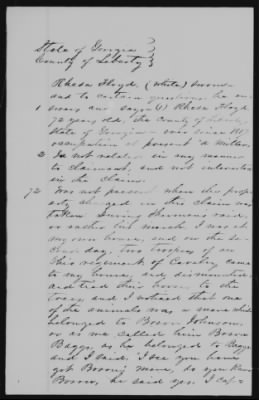 State of Georgia }
County of Liberty }
Rhesa Floyd, (White) sworn
and to certain questions he an-
1 swers and says (1) Rhesa Floyd
72 years old, the County of Liberty
State of Georgia
occupation at present a
2 Is not related in any manner
to claimant, and not interested
in the claim.
72 Was not present when this prop-
erty charged in this claim was
taken. During Shermans raid
or rather his march I was at
my own house, and on the
day, two troopers of an
Ohio regiment of Cavalry came
to my house, and dismounted
and tied their horses to the
trees, and I noticed that one
of the animals was a mare which
belonged to Johnson,
or as we called him
Baggs, as he belonged to Baggs
and I said, I see you have
got mare, do you know
he said yes. I